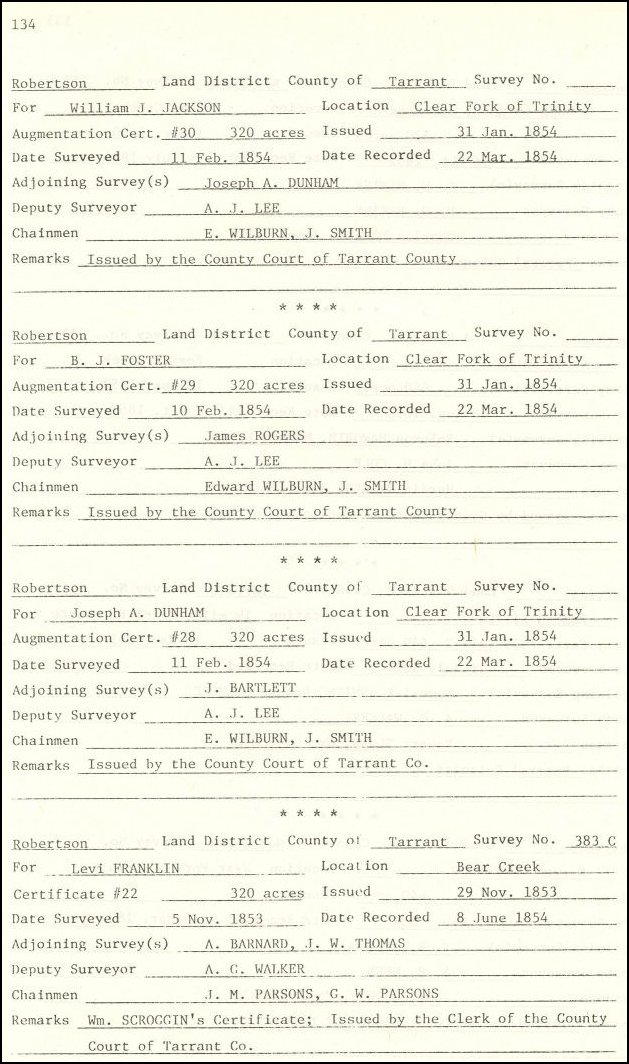 134
Robertson Land District County of Tarrant Survey No.
For William J. JACKSON Location Clear Fork of Trinity
Augmentation Cert. #30 320 acres Issued 31 Jan. 1854
Date Surveyed 11 Feb. 1854 Date Recorded 22 Mar. 1854
Adjoining Survey(s) Joseph A. DUNHAM
Deputy Surveyor A. J. LEE
Chainmen E. WILBURN, J. SMITH
Remarks Issued by the County Court of Tarrant County
* * * *
Robertson Land District County of Tarrant Survey No.
For B. J. FOSTER Location Clear Fork of Trinity
Augmentation Cert. #29 320 acres Issued 31 Jan. 1854
Date Surveyed 10 Feb. 1854 Date Recorded 22 Mar. 1854
Adjoining Survey(s) James ROGERS
Deputy Surveyor A. J. LEE
Chainmen Edward WILBURN, J. SMITH
Remarks Issued by the County Court of Tarrant County
* * * *
Robertson Land District County of Tarrant Survey No.
For Joseph A. DUNHAM Location Clear Fork of Trinity
Augmentation Cert. #28 320 acres Issued 31 Jan. 1854
Date Surveyed 11 Feb. 1854 Date Recorded 22 Mar. 1854
Adjoining Survey(s) J. BARTLETT
Deputy Surveyor A. J. LEE
Chainmen E. WILBURN, J. SMITH
Remarks Issued by the County Court of Tarrant Co.
* * * *
Robertson Land District County of Tarrant Survey No. 383 C
For Levi FRANKLIN Location Bear Creek
Certificate #22 320 acres Issued 29 Nov. 1853
Date Surveyed 5 Nov. 1853 Date Recorded 8 June 1854
Adjoining Survey(s) A. BARNARD, J. W. THOMAS
Deputy Surveyor A. G. WALKER
Chainmen J. M. PARSONS, G. W. PARSONS
Remarks Wm. SCROGGIN's Certificate; Issued by the Clerk of the County
Court of Tarrant Co.